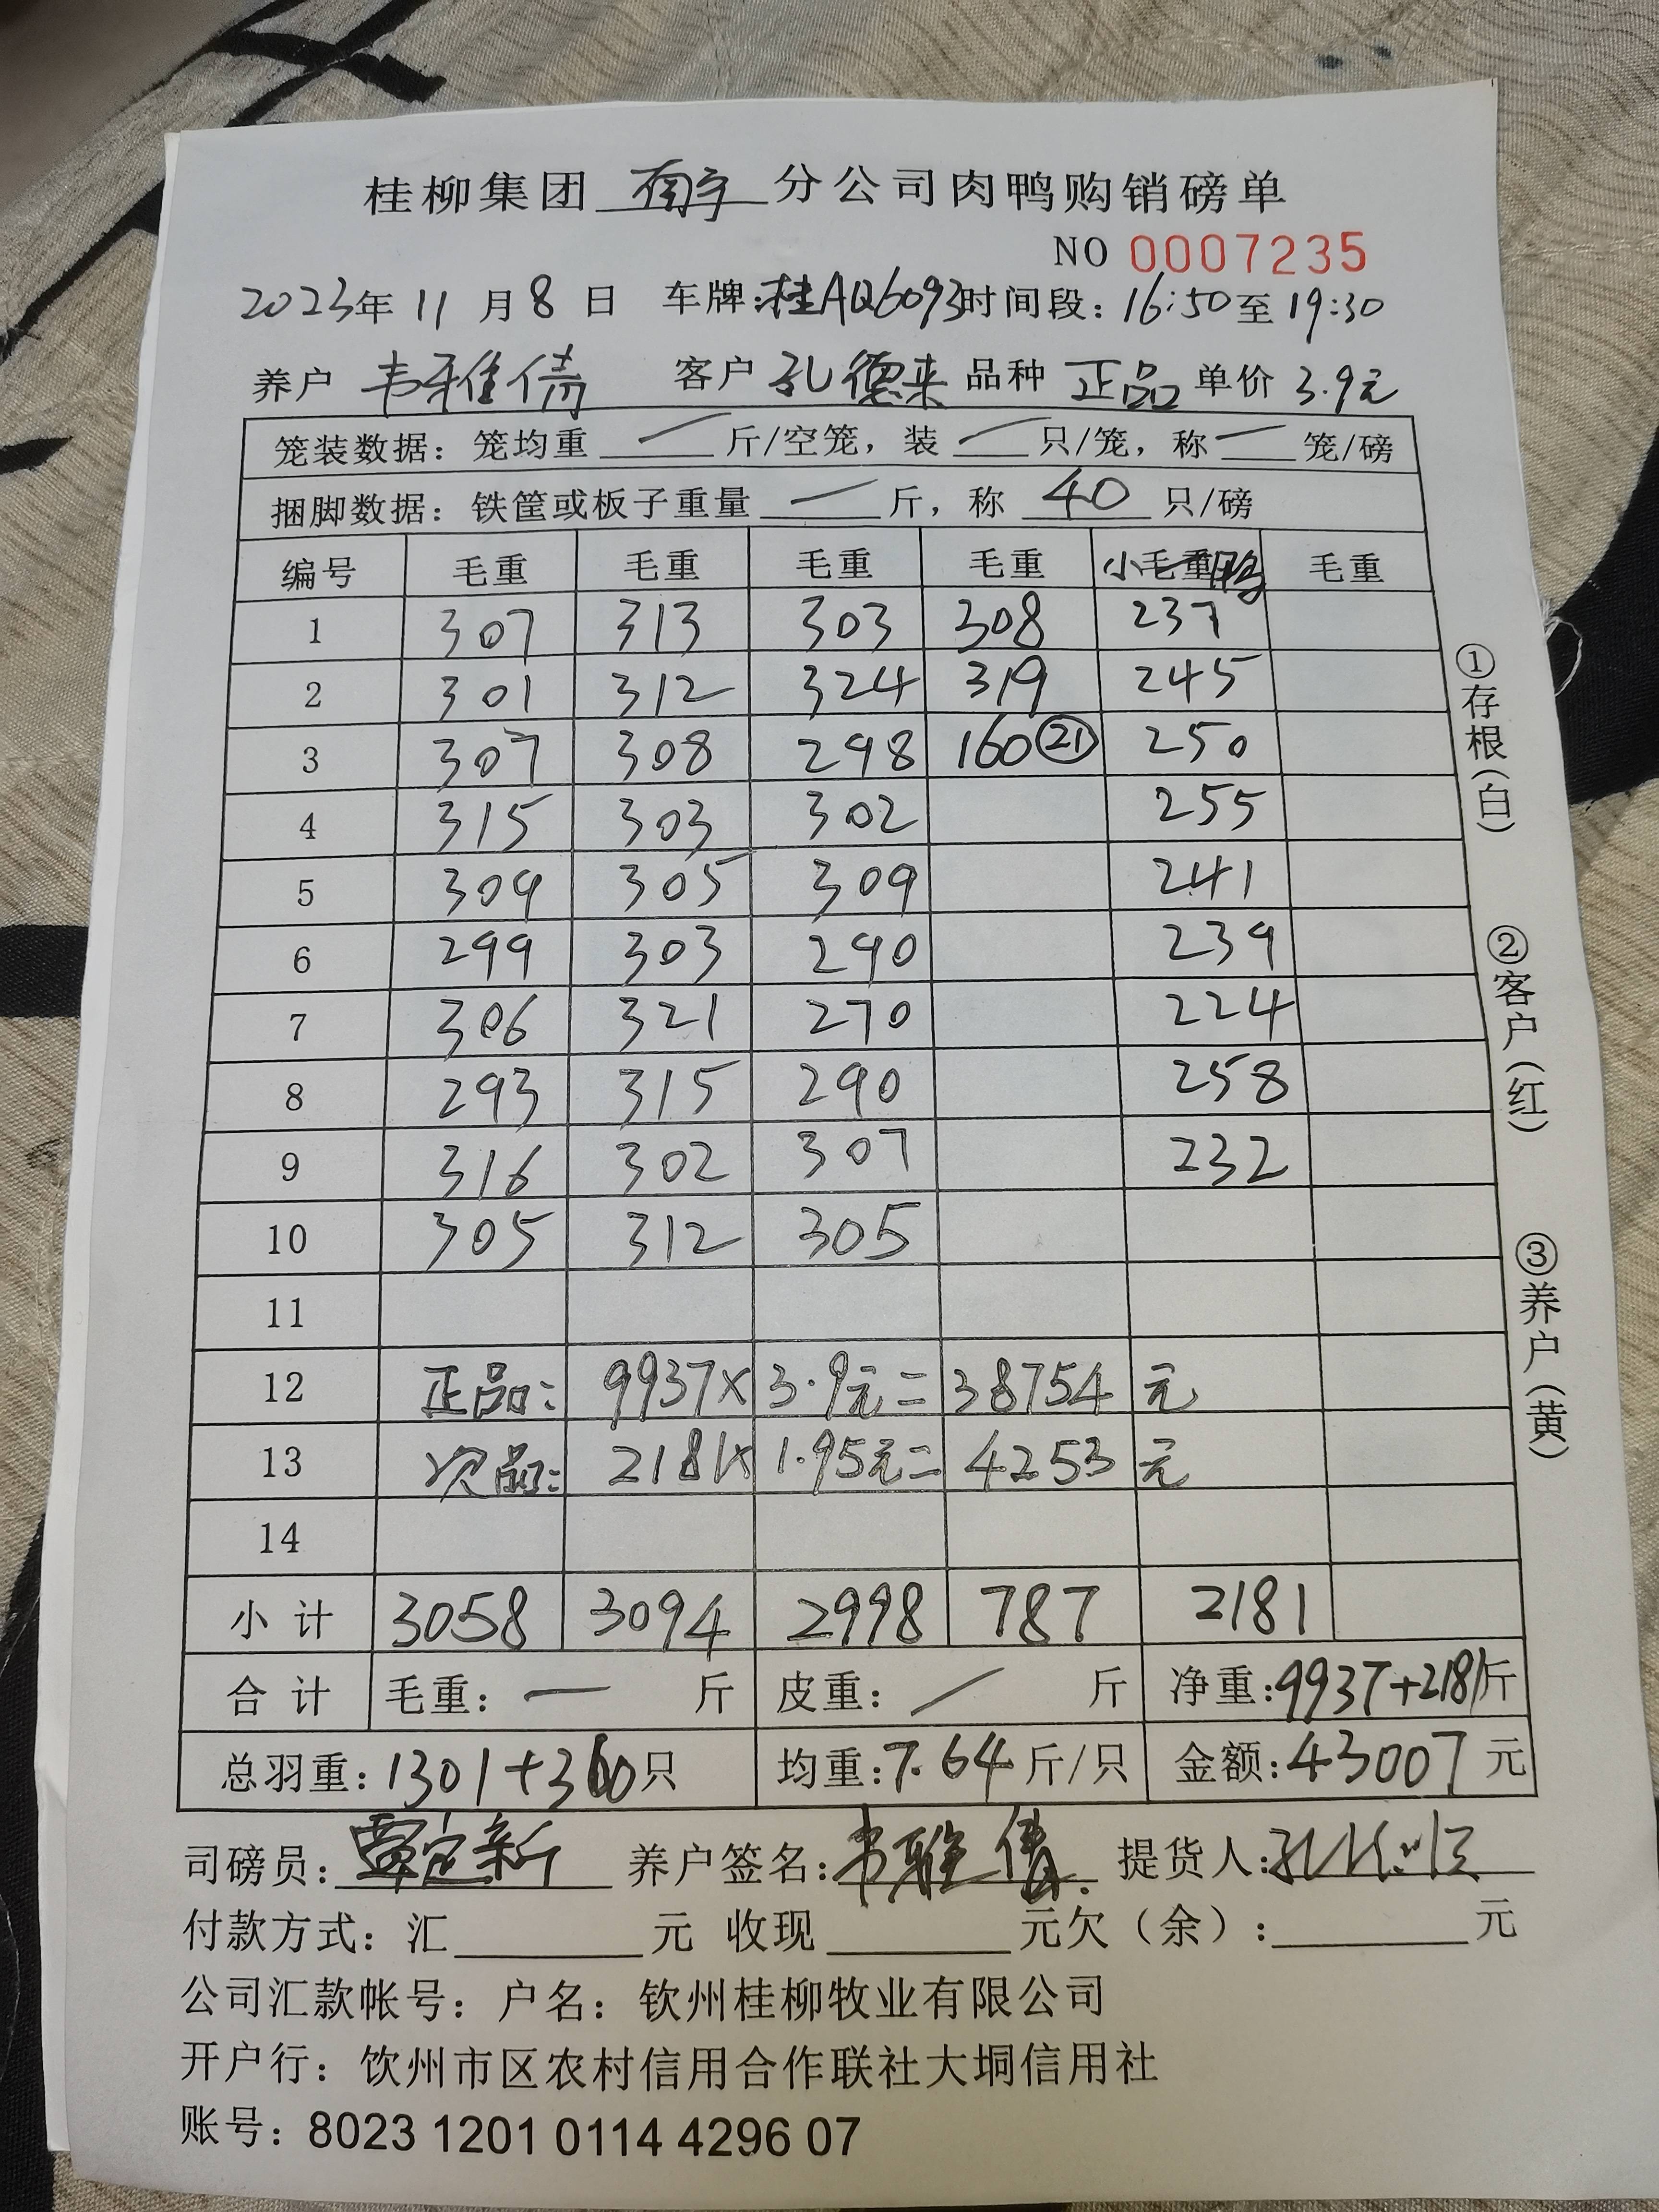 桂柳集团 南宁 分公司肉鸭购销磅单
NO 0007235
2023年 11 月 8 日 车牌:桂AQ6093 时间段: 16:50 至 19:30
养户 韦雅倩 客户 孔德来 品种 正品 单价 3.9元
笼装数据: 笼均重 一 斤/空笼, 装 一 只/笼, 称 一 笼/磅
捆脚数据: 铁筐或板子重量 一 斤, 称 40 只/磅
编号 毛重 毛重 毛重 毛重 小毛重鸭 毛重
1 307 313 303 308 237
2 301 312 324 319 245
3 307 308 298 160㉑ 250
4 315 303 302 255
5 309 305 309 241
6 299 303 290 239
7 306 321 270 224
8 293 315 290 258
9 316 302 307 232
10 305 312 305
11
12 正品: 9937× 3.9元= 38754 元
13 次品: 2181× 1.95元= 4253 元
14
小 计 3058 3094 2998 787 2181
合 计 毛重: 一 斤 皮重: 一 斤 净重:9937+2181斤
总羽重: 1301+360只 均重:7.64斤/只 金额:43007 元
司磅员: 覃定新 养户签名: 韦雅倩 提货人:
付款方式: 汇 元 收现 元欠（余）: 元
公司汇款帐号: 户名: 钦州桂柳牧业有限公司
开户行: 饮州市区农村信用合作联社大垌信用社
账号: 8023 1201 0114 4296 07
①存根（白）
②客户（红）
③养户（黄）